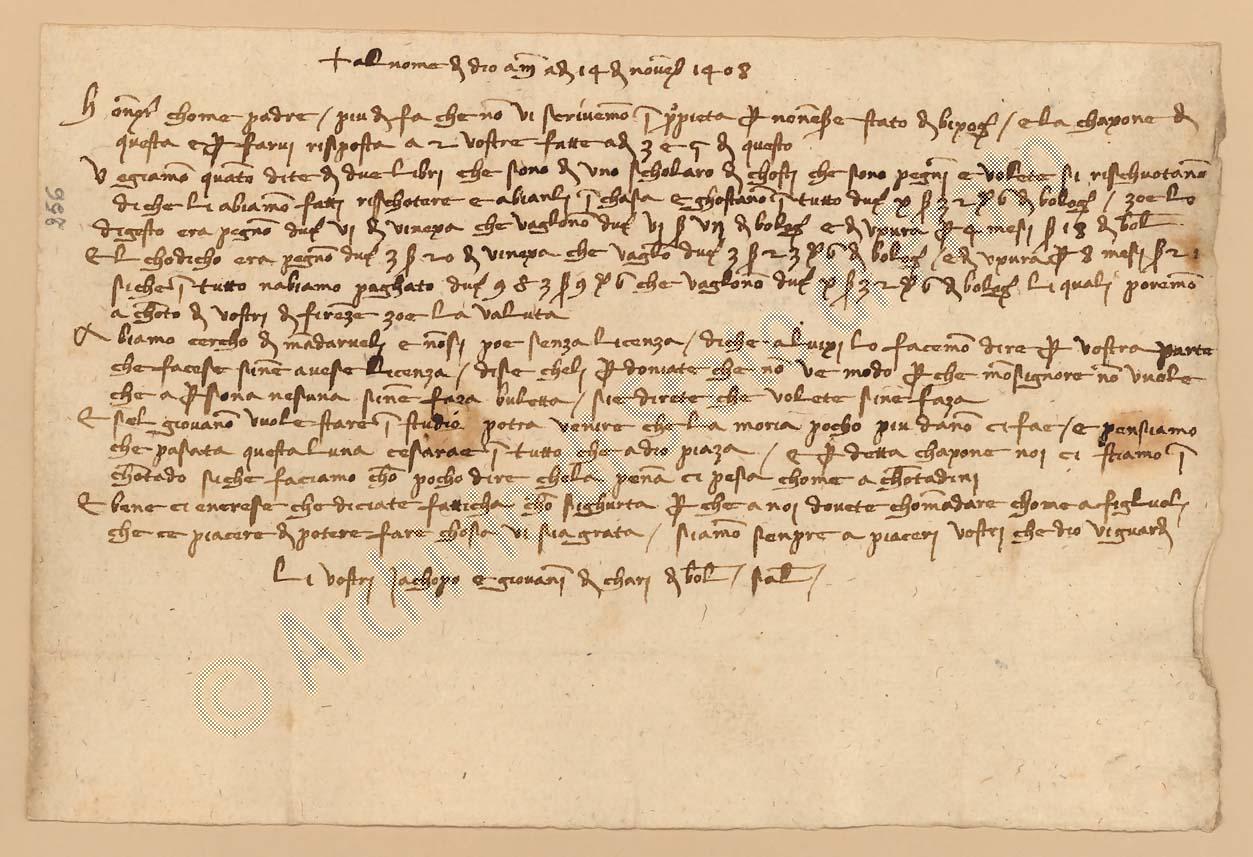 + al nome di dio am̄ adì 14 di nov̄e 1408
H on̄r chome padre / più dì fa che nō vi scrivemō ī p̱pietà per nonn'ese stato di bixoḡ / e la chaxone di
questa è per farvi risposta a 2 vostre fatte adì 3 e 5 di questo
V egiamō quātō dite di due libri che sono di uno scholaro di chostì che sono pegnī e volete si rischuotanō
di che li abiamō fatti rischotere e abianli ī chasa e ghostanō ī tutto duc̄ x s 32 d 6 di boloḡ / zoè lo
digesto era pegnō duc̄ vi di vinexa che vaglonō duc̄ vi s vii di boloḡ e di uxura per 4 mesi s 18 di bol̄
E l chodicho era pegnō duc̄ 3 s 20 di vinexa che vaglō duc̄ 3 s 23 d 6 di boloḡ / e di uxura per 8 mesi s 21
siché ī tutto n'abiamo paghato duc̄ 9 e 3 s 9 d 6 che vaglonō duc̄ x s 32 d 6 di boloḡ li quali poremō
a chōto di vostri di firenze zoè la valuta
A biamo cercho di mādarveli e nōsi poe senza licenza / di che alvixi lo facemō dire per vostra parte
che facese sine avese licenza / dise che li perdoniate che nō v'è modo perché mōsignore nō vuole
che a persona nesuna sine faza buletta / sì è direte che volete sine faza
E se'l giovanō vuole stare ī studio potrà venire che la morìa pocho più danō ci fae / e pensiamo
che pasata questa luna cesarae ī tutto che a dio piaza / e per detta chaxone noi ci stiamo ī
chōtado siché faciamo chō pocho dire che la penā ci pesa chome a chōtadini
E bene ci encrese che diciate fatticha chō sighurtà perché a noi dovete chomādare chome a figluoli
che c'è piacere di potere fare chosa vi sia grata / siamō senpre a piaceri vostri che dio vi guardi
Li vostri Jachopo e giovanī di chari di bol̄ / sal̄ /
856
© Archivio di Stato di Prato